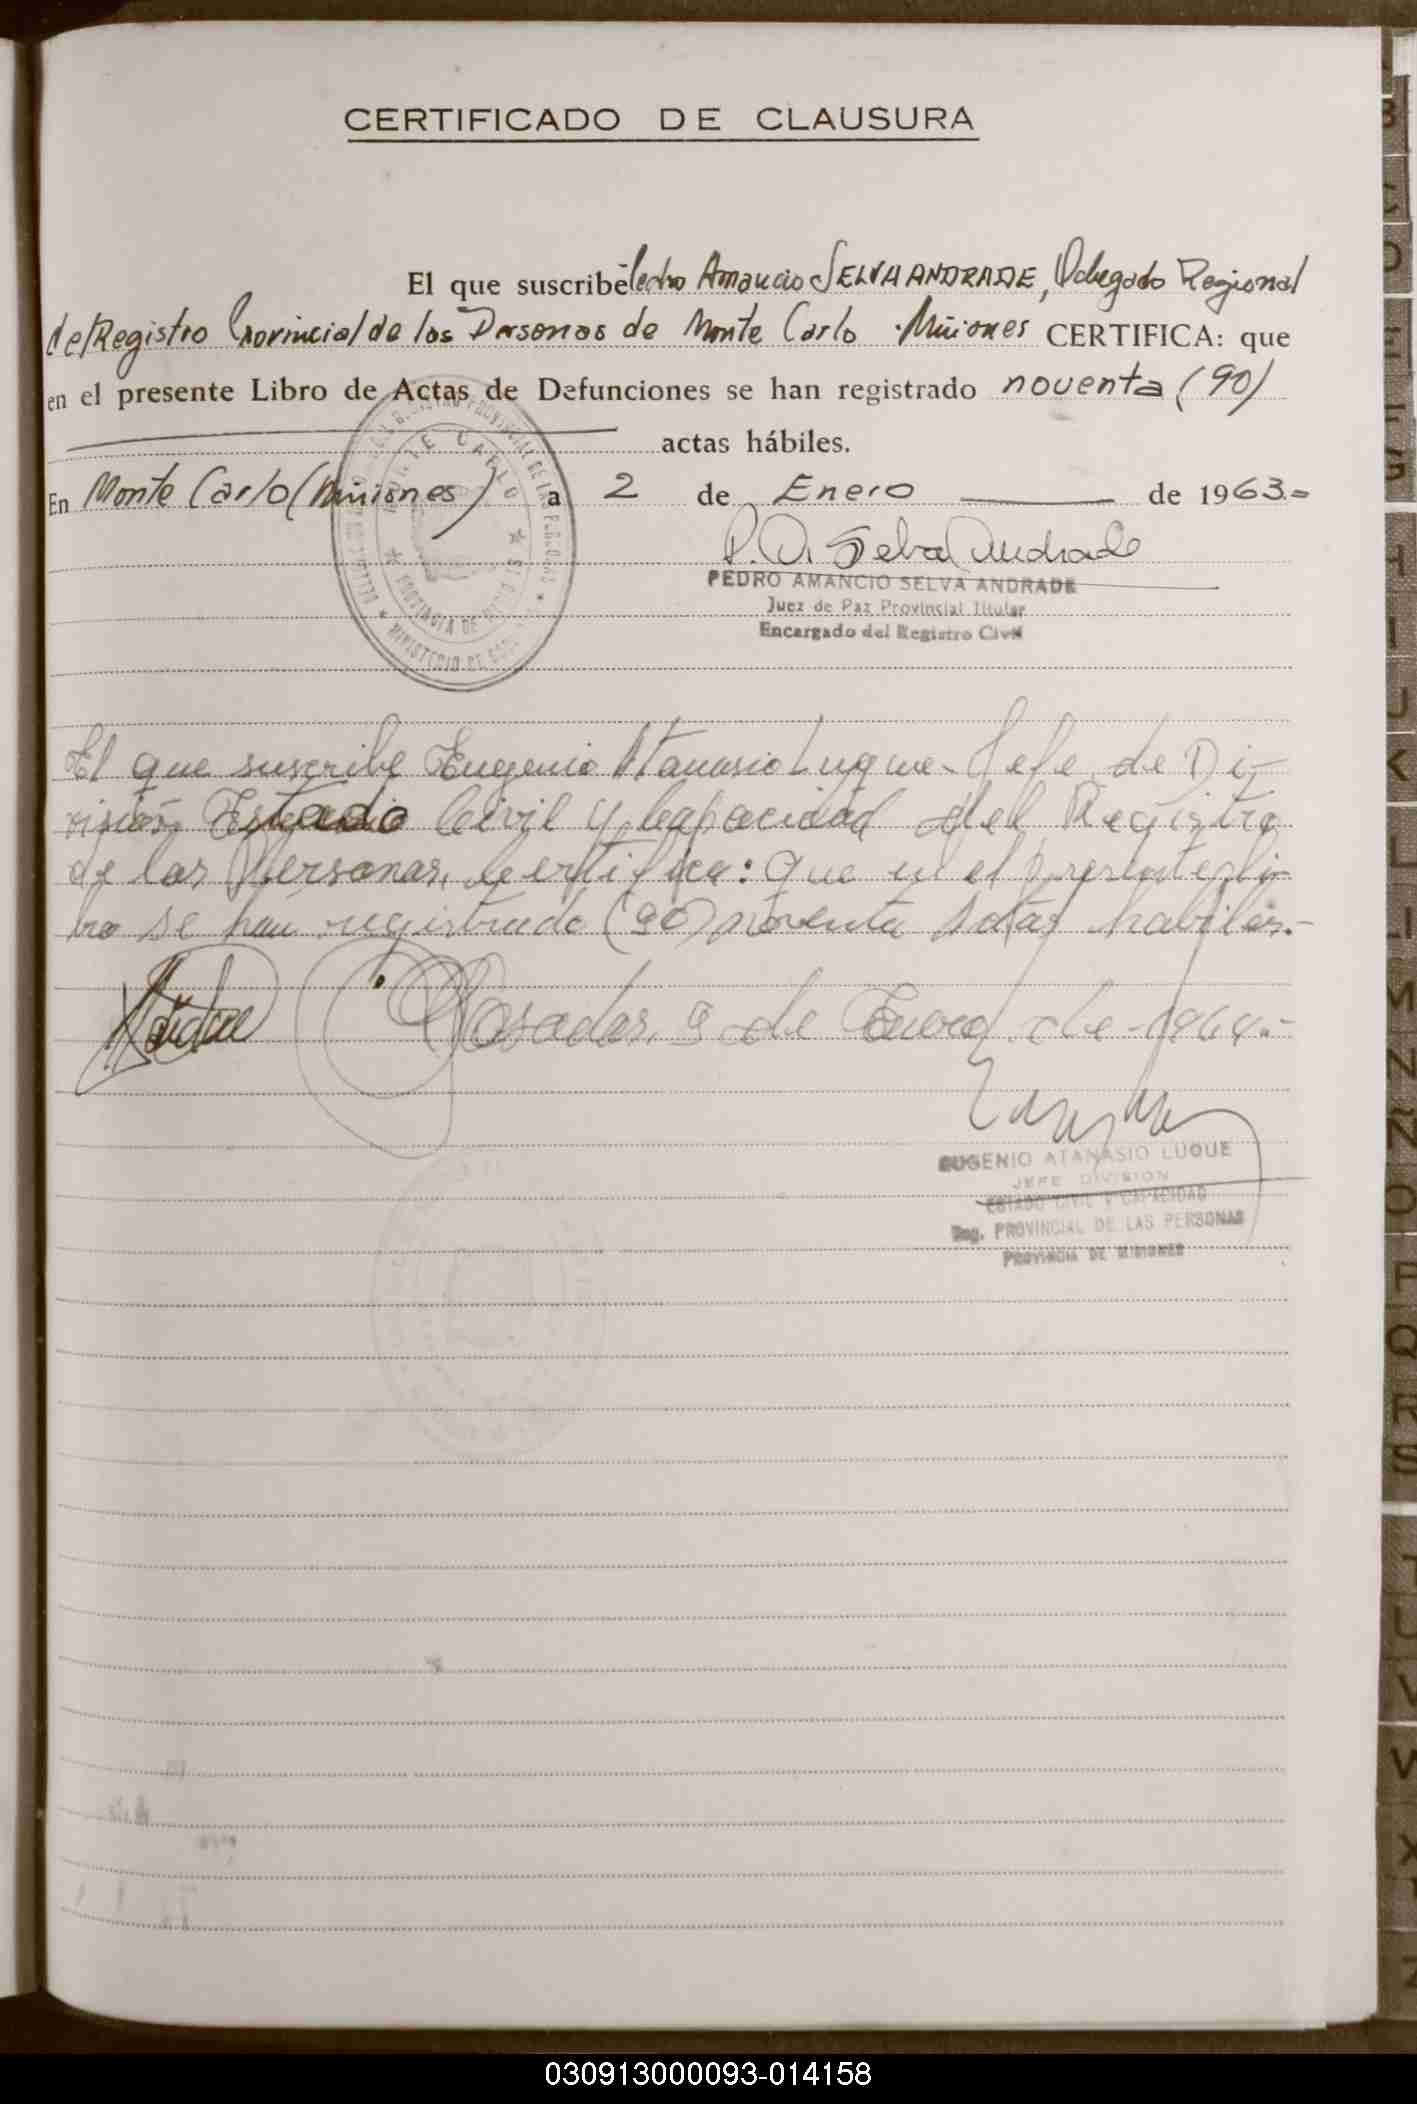 CERTIFICADO DE CLAUSURA
El que suscribe Pedro Amancio SELVA ANDRADE, Delegado Regional
del Registro Provincial de las Personas de Monte Carlo Misiones CERTIFICA: que
en el presente Libro de Actas de Defunciones se han registrado noventa (90)
actas hábiles.
En Monte Carlo (Misiones) a 2 de Enero de 1963.=
MONTE CARLO
PROVINCIA DE MISIONES
P. A. Selva Andrade
PEDRO AMANCIO SELVA ANDRADE
Juez de Paz Provincial Titular
Encargado del Registro Civil
El que suscribe Eugenio Atanasio Luque. Jefe de Di-
visión Estado Civil y Capacidad del Registro
de las Personas, Certifica: que en el presente li-
bro se han registrado (90) noventa actas habiles.-
Posadas, 9 de Enero de 1964.-
EUGENIO ATANASIO LUQUE
JEFE DIVISION
ESTADO CIVIL Y CAPACIDAD
Reg. PROVINCIAL DE LAS PERSONAS
PROVINCIA DE MISIONES
B
C
D
E
F
G
H
I
J
K
L
LL
M
N
Ñ
O
P
Q
R
S
T
U
V
W
X
Y
Z
030913000093-014158